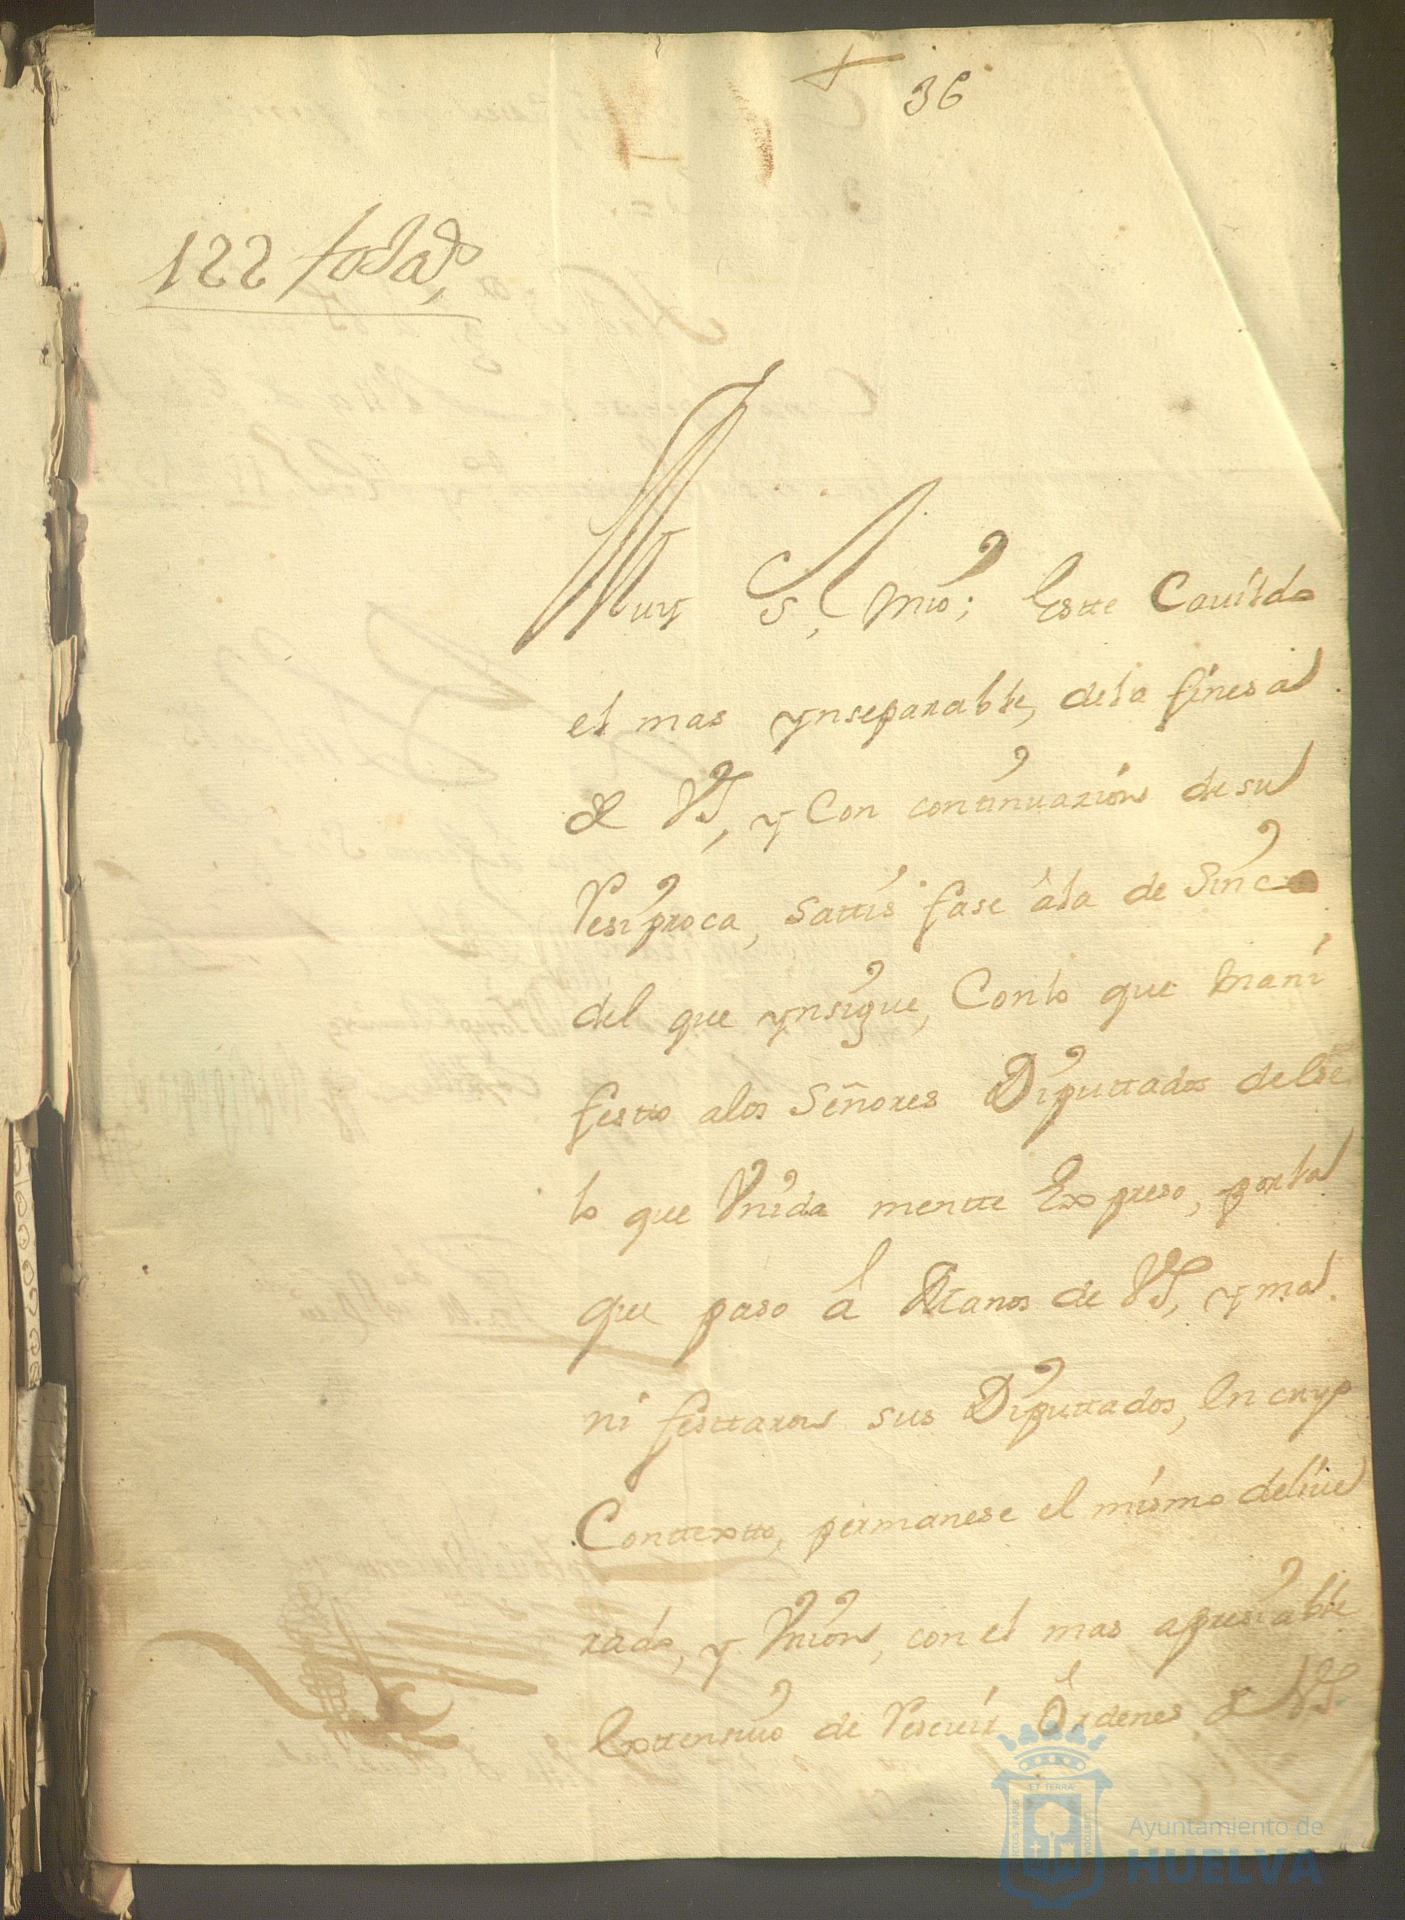 36
122
Muy S.r mio; Estte Cavildo
el mas ynseparable, dela finesa
de VS, y Con continuazion de su
Resiproca, sattis fase âla de Sinco
del que ynsigue, Conlo que mani
festto alos Señores Diputtados deese
lo que Vnida mentte Expreso, porla
que paso â Manos de VS, y ma
ni festtaron sus Diputtados, En cuyo
Conttextto, permanese el mismo delive
rado, y Vnion, con el mas apresiable
Exttensivo de Resevir Ordenes de VS.
ET TERRÆ
Ayuntamiento de
HUELVA